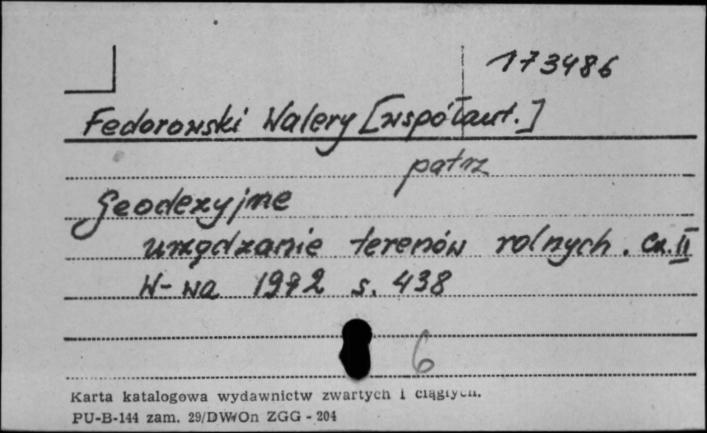 173486
Fedorowski Walery [współaut.]
patrz
Geodezyjne
urządzanie terenów rolnych. Cz. II
W-wa 1972 s. 438
6
Karta katalogowa wydawnictw zwartych i ciągłych.
PU-B-144 zam. 29/DWOn ZGG - 204